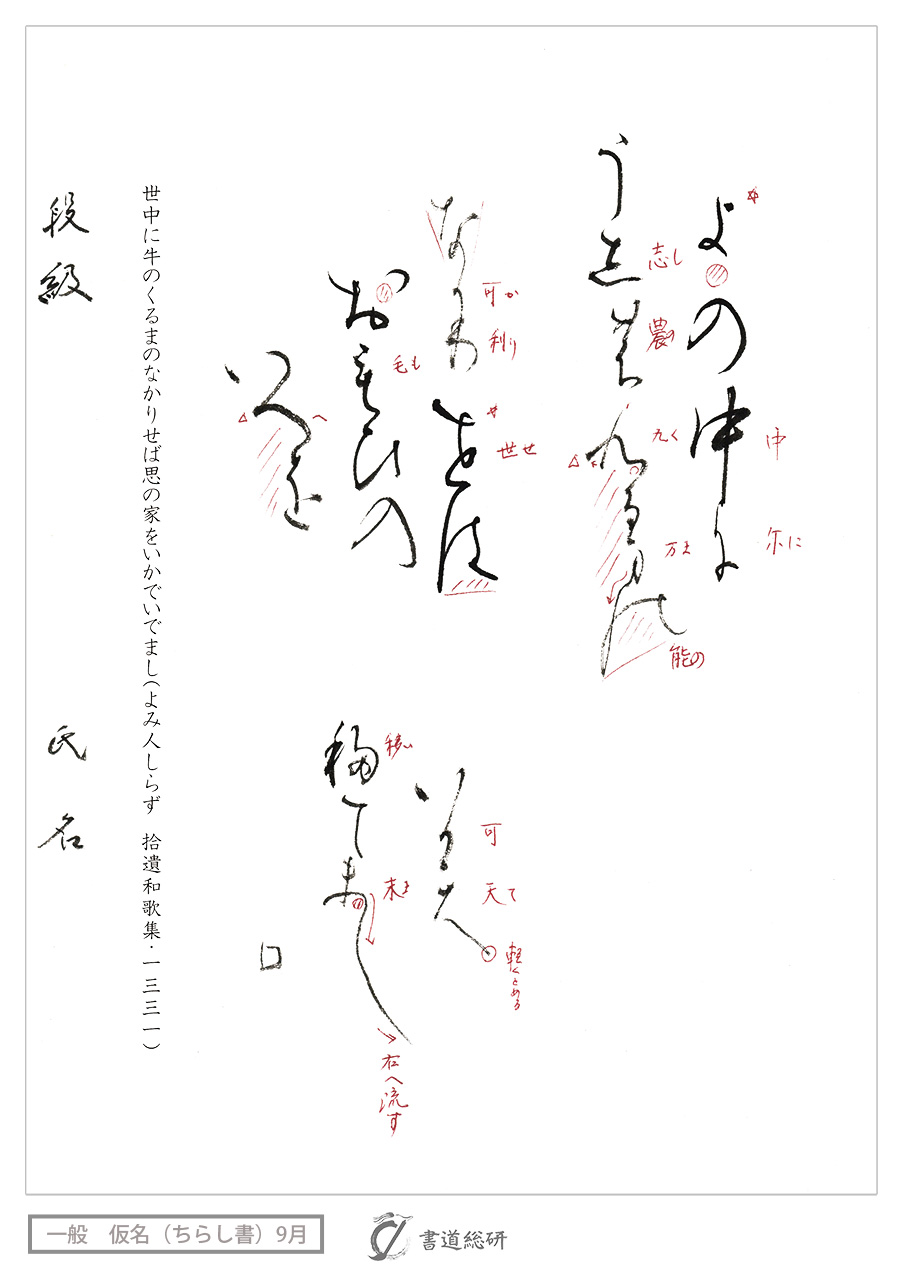 よの中尓
中
尓に
う志農九る万能
志し
農の
九く
万ま
能の
な可利
可か
利り
世は
世せ
お毛ひの
毛も
いへを
い可天
可
天て
軽くとめる
移て末し
移い
末ま
右へ流す
世中に牛のくるまのなかりせば思の家をいかでいでまし(よみ人しらず　拾遺和歌集・一三三一)
段級
氏名
一般　仮名（ちらし書）9月
書道総研